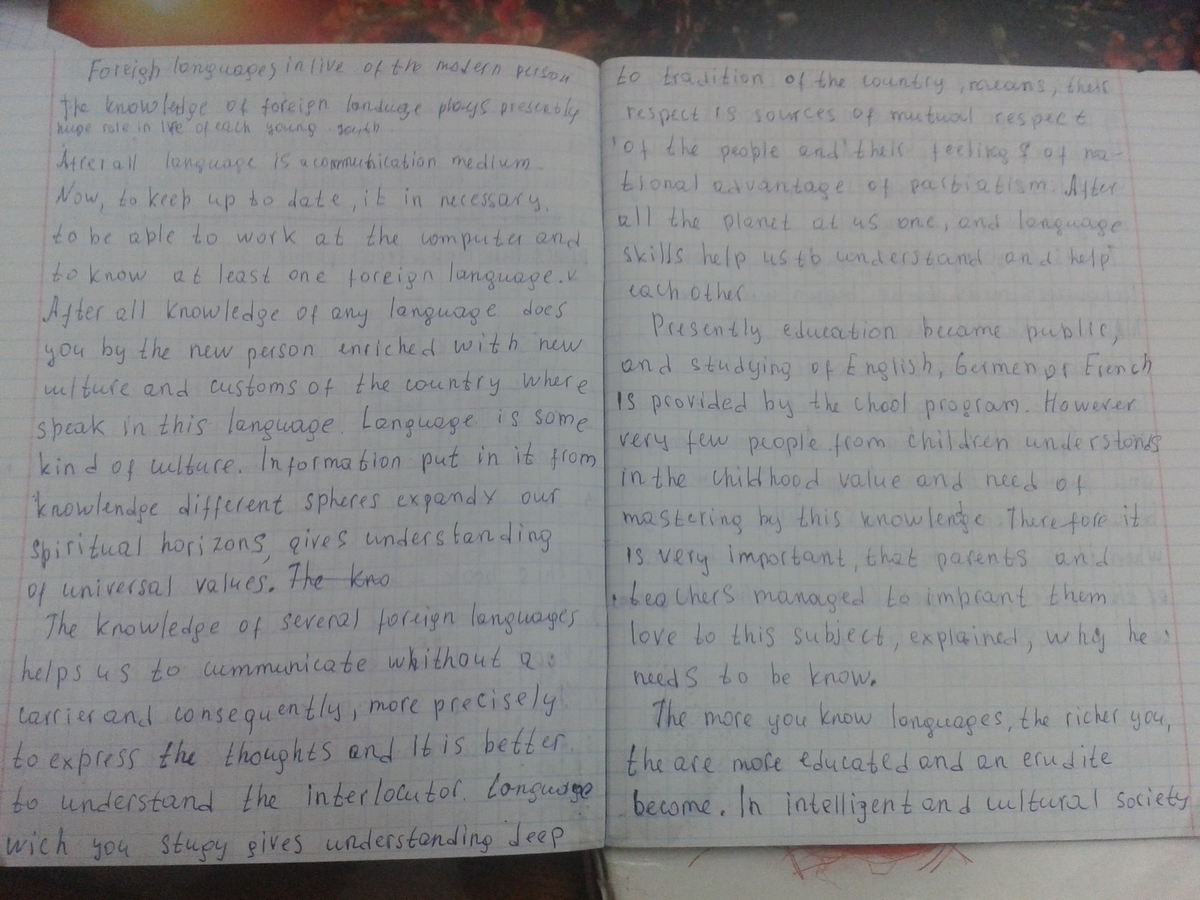 Foreigh languages in live of the modern person
The knowledge of foreign landuage plays presently
huge role in life of each young youth.
After all language is a communication medium.
Now, to keep up to date, it in necessary.
to be able to work at the computer and
to know at least one foreign language.v
After all knowledge of any language does
you by the new person enriched with new
culture and customs of the country where
speak in this language. Language is some
kind of culture. Information put in it from
knowlendge different spheres expandx our
spiritual horizons, gives understanding
of universal values. The kno
The knowledge of several foreign languages
helps us to cummunicate whithout a
carrier and consequently, more precisely
to express the thoughts and it is better.
to understand the interlocutor. Language
wich you stugy gives understanding deep
to tradition of the country, means, their
respect is sources of mutual respect
of the people and their feeling of na-
tional advantage of partiatism. After
all the planet at us one, and language
skills help us to understand and help
each other.
Presently education became public,
and studying of English, Germen or French
is provided by the chool program. However
very few people from children understands
in the childhood value and need of
mastering by this knowlenge. Therefore it
is very important, that parents and
teachers managed to imprant them
love to this subject, explained, why he
needs to be know.
The more you know languages, the richer you,
the are more educated and an erudite
become. In intelligent and cultural society